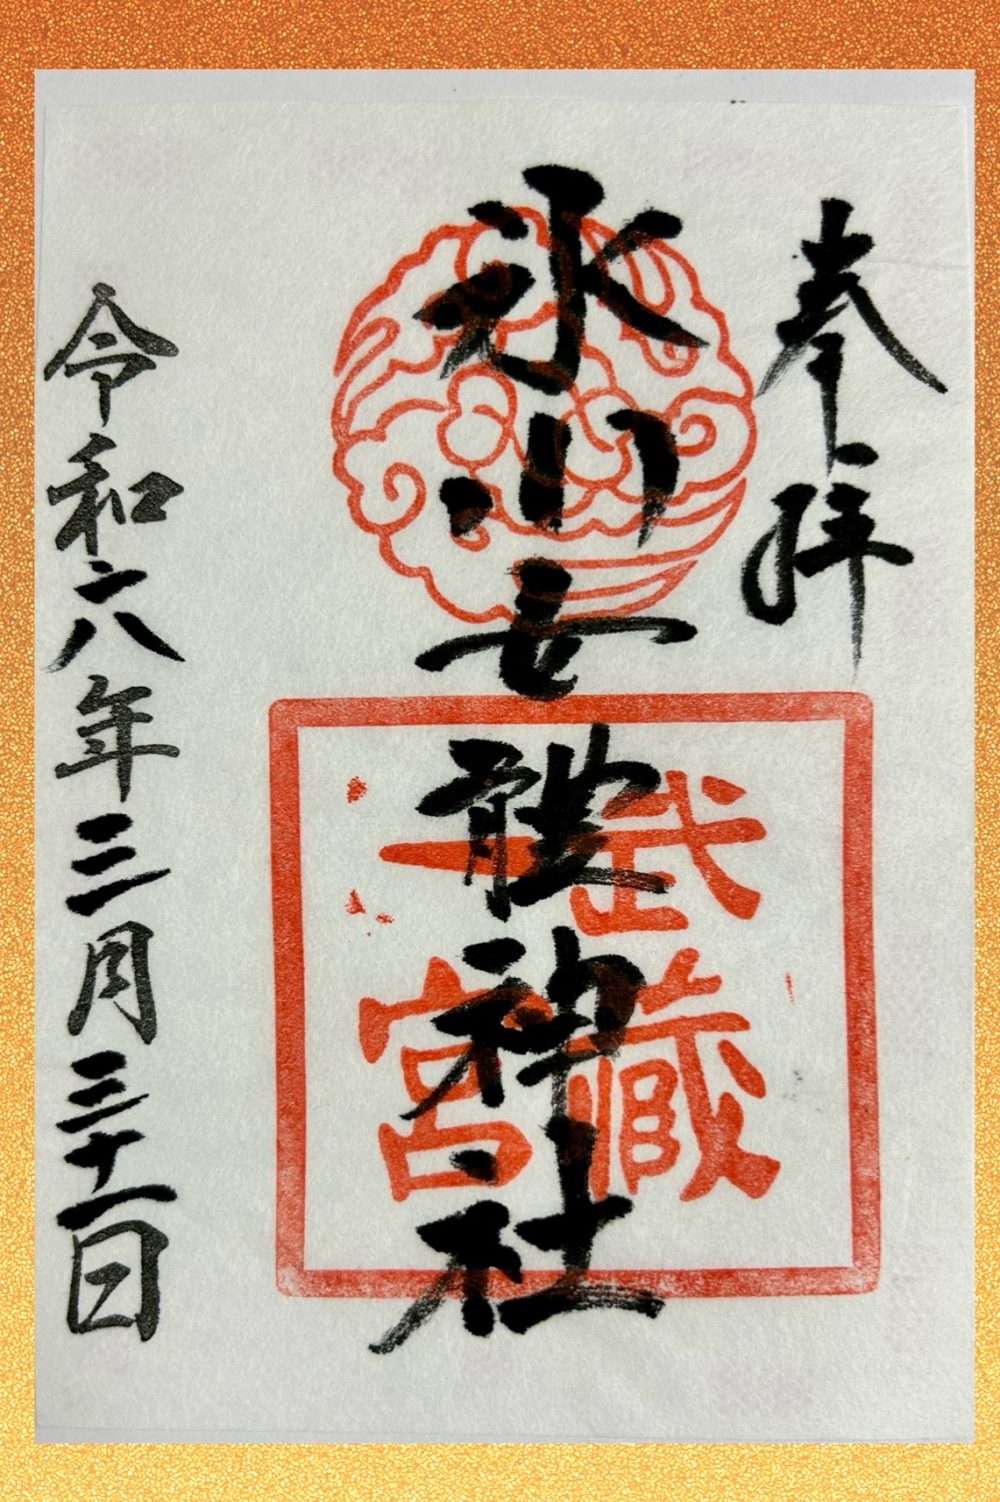 奉拝
氷川女體神社
武藏
一宮
令和六年三月三十一日